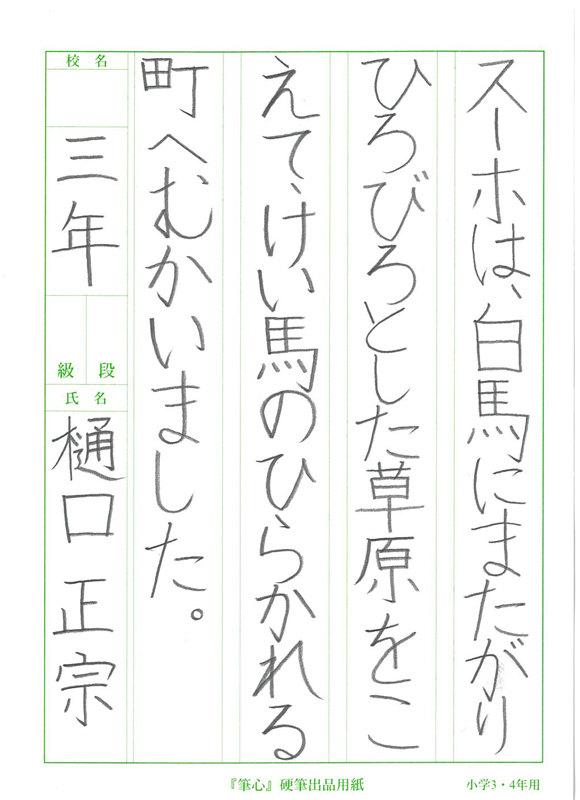 スーホは、白馬にまたがり
ひろびろとした草原をこ
えて、けい馬のひらかれる
町へむかいました。
校名
三年
級段
氏名
樋口正宗
『筆心』硬筆出品用紙
小学3・4年用